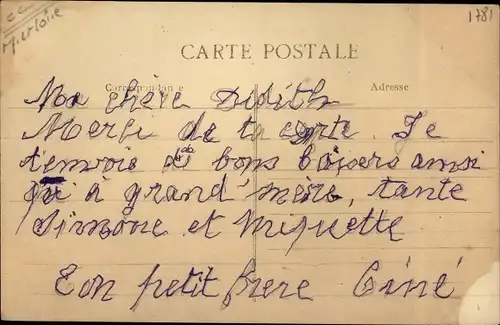 M. et Loire
1781
CARTE POSTALE
Correspondance
Adresse
Ma chère Dédith
Merci de ta carte. Je
t'envoie de bons baisers ainsi
qu'à grand'mère, tante
Simone et Miquette
Ton petit frere Giné